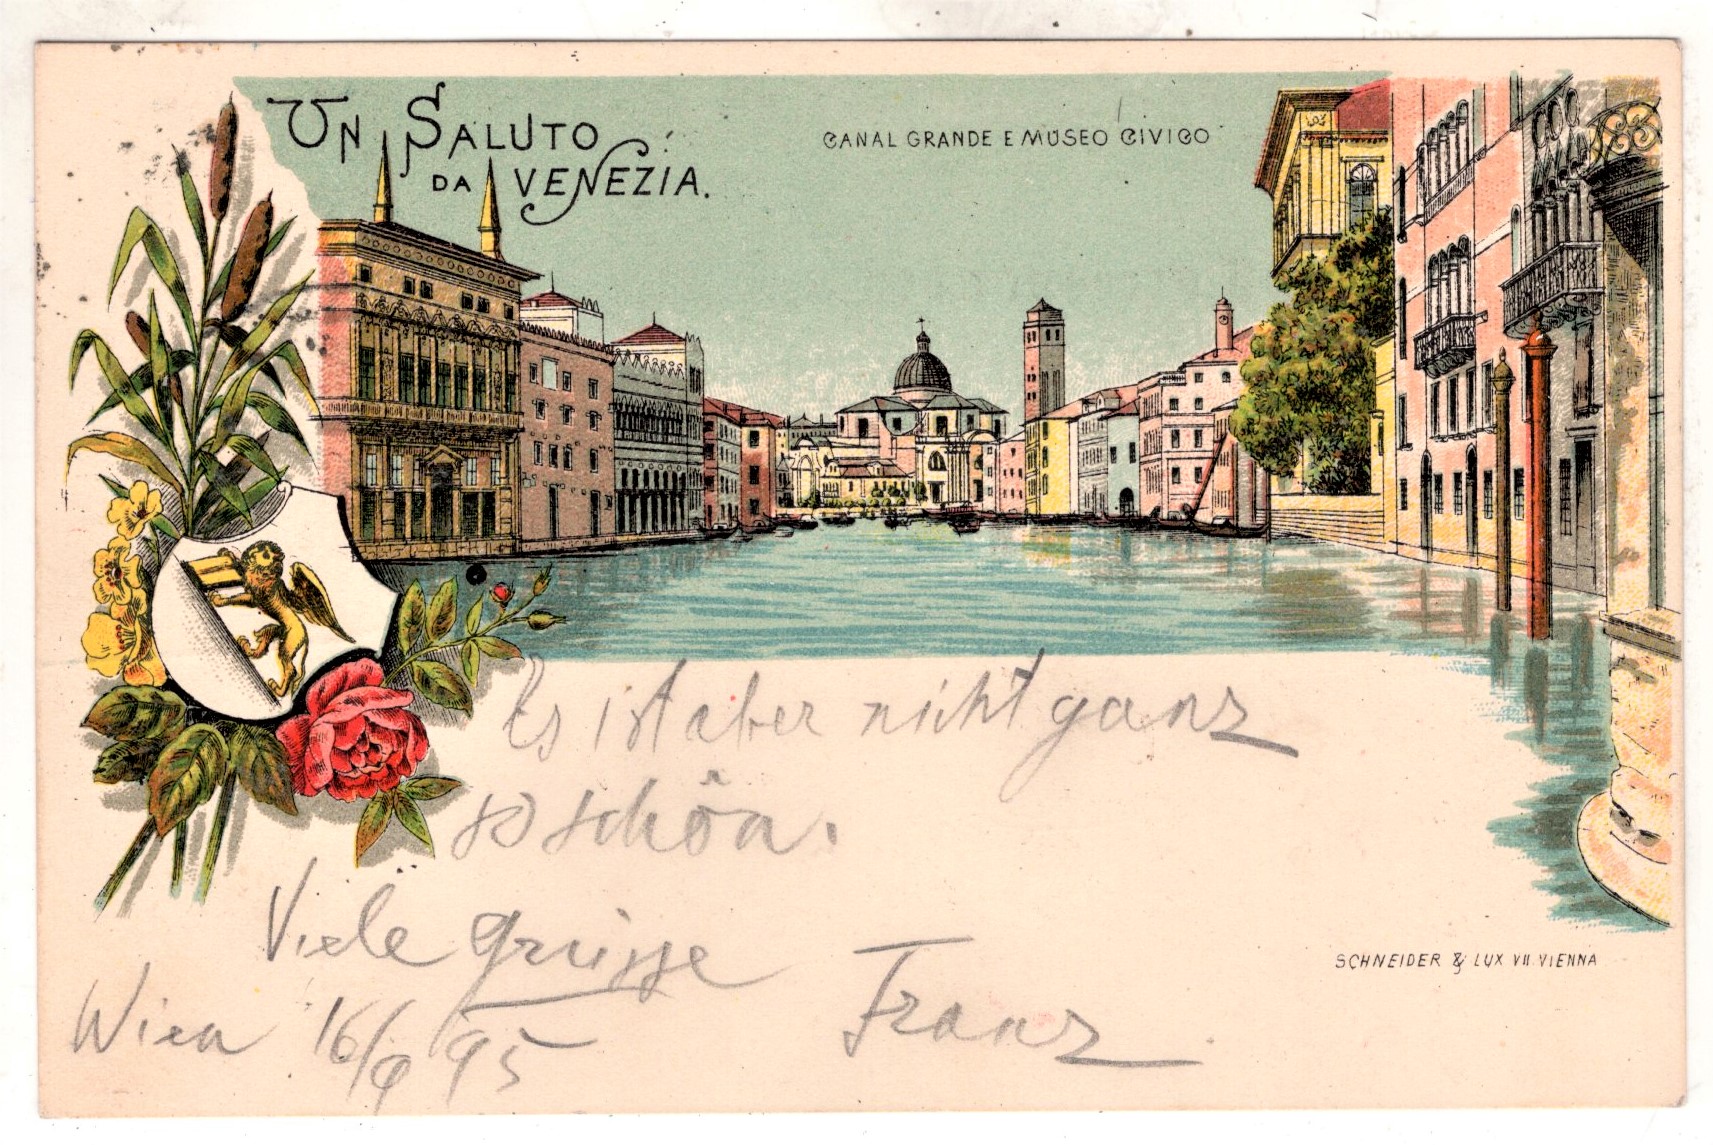 Un Saluto
da Venezia.
Canal Grande e Museo Civico
Es ist aber nicht ganz
so schön.
Viele Grüsse
Franz
Wien 16/9 95
Schneider & Lux VII. Vienna